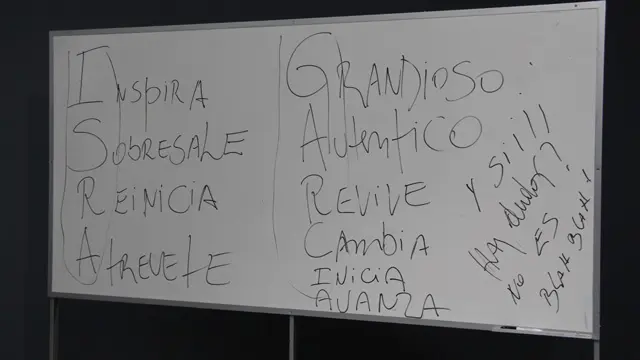 INSPIRA
SOBRESALE
REINICIA
ATREVETE
GRANDIOSO:
AUTENTICO
REVIVE
CAMBIA
INICIA
AVANZA
Y SI!!!
Hay dudas?
No ES
BLAH BLAH!